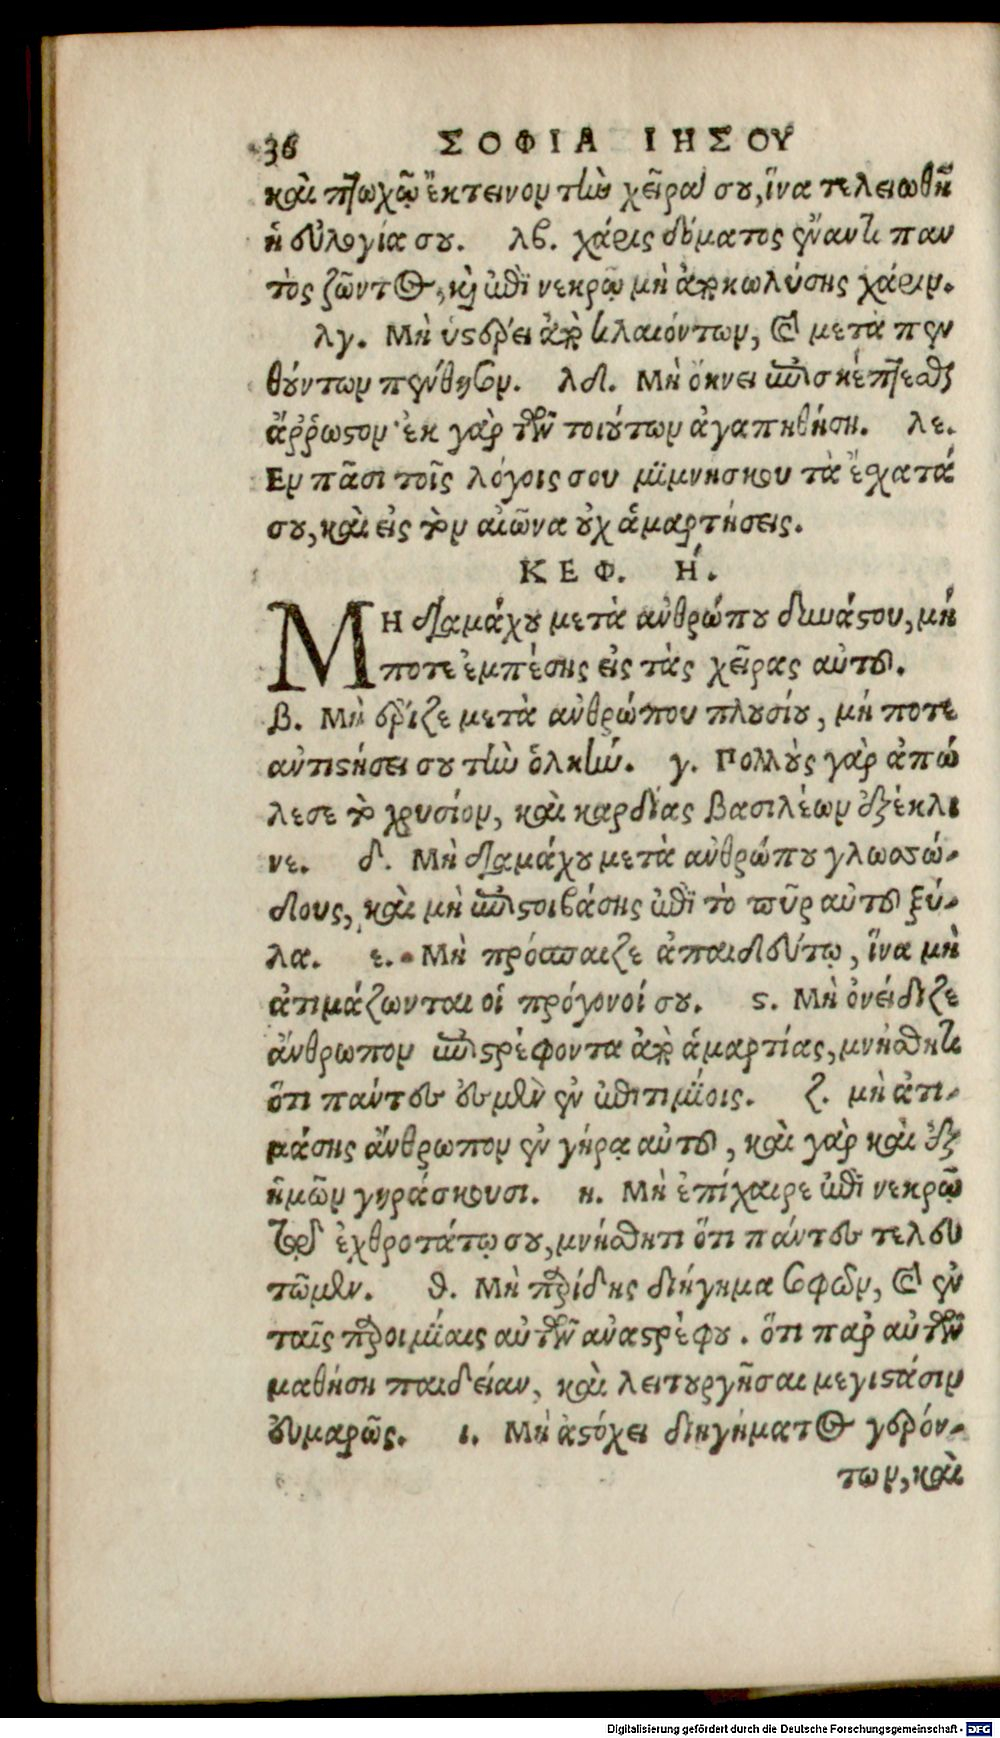 36 ΣΟΦΙΑ ΙΗΣΟΥ
καὶ πτωχῷ ἔκτεινον τὴν χεῖρά σου, ἵνα τελειωθῇ
ἡ εὐλογία σου. λβ. χάρις δόματος ἔναντι παν
τὸς ζῶντος, καὶ ἐπὶ νεκρῷ μὴ ἀποκωλύσῃς χάριν.
λγ. Μὴ ὑστέρει ἀπὸ κλαιόντων, καὶ μετὰ πεν
θούντων πένθησον. λδ. Μὴ ὄκνει ἐπισκέπτεσθαι
ἄῤῥωστον· ἐκ γὰρ τῶν τοιούτων ἀγαπηθήσῃ. λε.
Εν πᾶσι τοῖς λόγοις σου μιμνήσκου τὰ ἔσχατά
σου, καὶ εἰς τὸν αἰῶνα οὐχ ἁμαρτήσεις.
ΚΕΦ. Ή.
ΜΗ διαμάχου μετὰ ἀνθρώπου δυνάστου, μή
ποτε ἐμπέσῃς εἰς τὰς χεῖρας αὐτοῦ.
β. Μὴ ἔριζε μετὰ ἀνθρώπου πλουσίου, μή ποτε
ἀντιστήσει σου τὴν ὁλκήν. γ. Πολλοὺς γὰρ ἀπώ
λεσε τὸ χρυσίον, καὶ καρδίας βασιλέων ἐξέκλι
νε. δ. Μὴ διαμάχου μετὰ ἀνθρώπου γλωσσώ-
δους, καὶ μὴ ἐπιστοιβάσῃς ἐπὶ τὸ πῦρ αὐτοῦ ξύ-
λα. ε. Μὴ πρόσπαιζε ἀπαιδεύτῳ, ἵνα μὴ
ἀτιμάζωνται οἱ πρόγονοί σου. ϛ. Μὴ ὀνείδιζε
ἄνθρωπον ἐπιστρέφοντα ἀπὸ ἁμαρτίας, μνήσθητι
ὅτι πάντες ἐσμὲν ἐν ἐπιτιμίοις. ζ. μὴ ἀτι-
μάσῃς ἄνθρωπον ἐν γήρᾳ αὐτοῦ, καὶ γὰρ καὶ ἐξ
ἡμῶν γηράσκουσι. η. Μὴ ἐπίχαιρε ἐπὶ νεκρῷ
τῷ ἐχθροτάτῳ σου, μνήσθητι ὅτι πάντες τελευ
τῶμεν. θ. Μὴ παρίδῃς διήγημα σοφῶν, καὶ ἐν
ταῖς παροιμίαις αὐτῶν ἀναστρέφου. ὅτι παρ αὐτῶν
μαθήσῃ παιδείαν, καὶ λειτουργῆσαι μεγιστάσιν
εὐμαρῶς. ι. Μὴ ἀστόχει διηγήματος γερόν-
των, καὶ
Digitalisierung gefördert durch die Deutsche Forschungsgemeinschaft - DFG